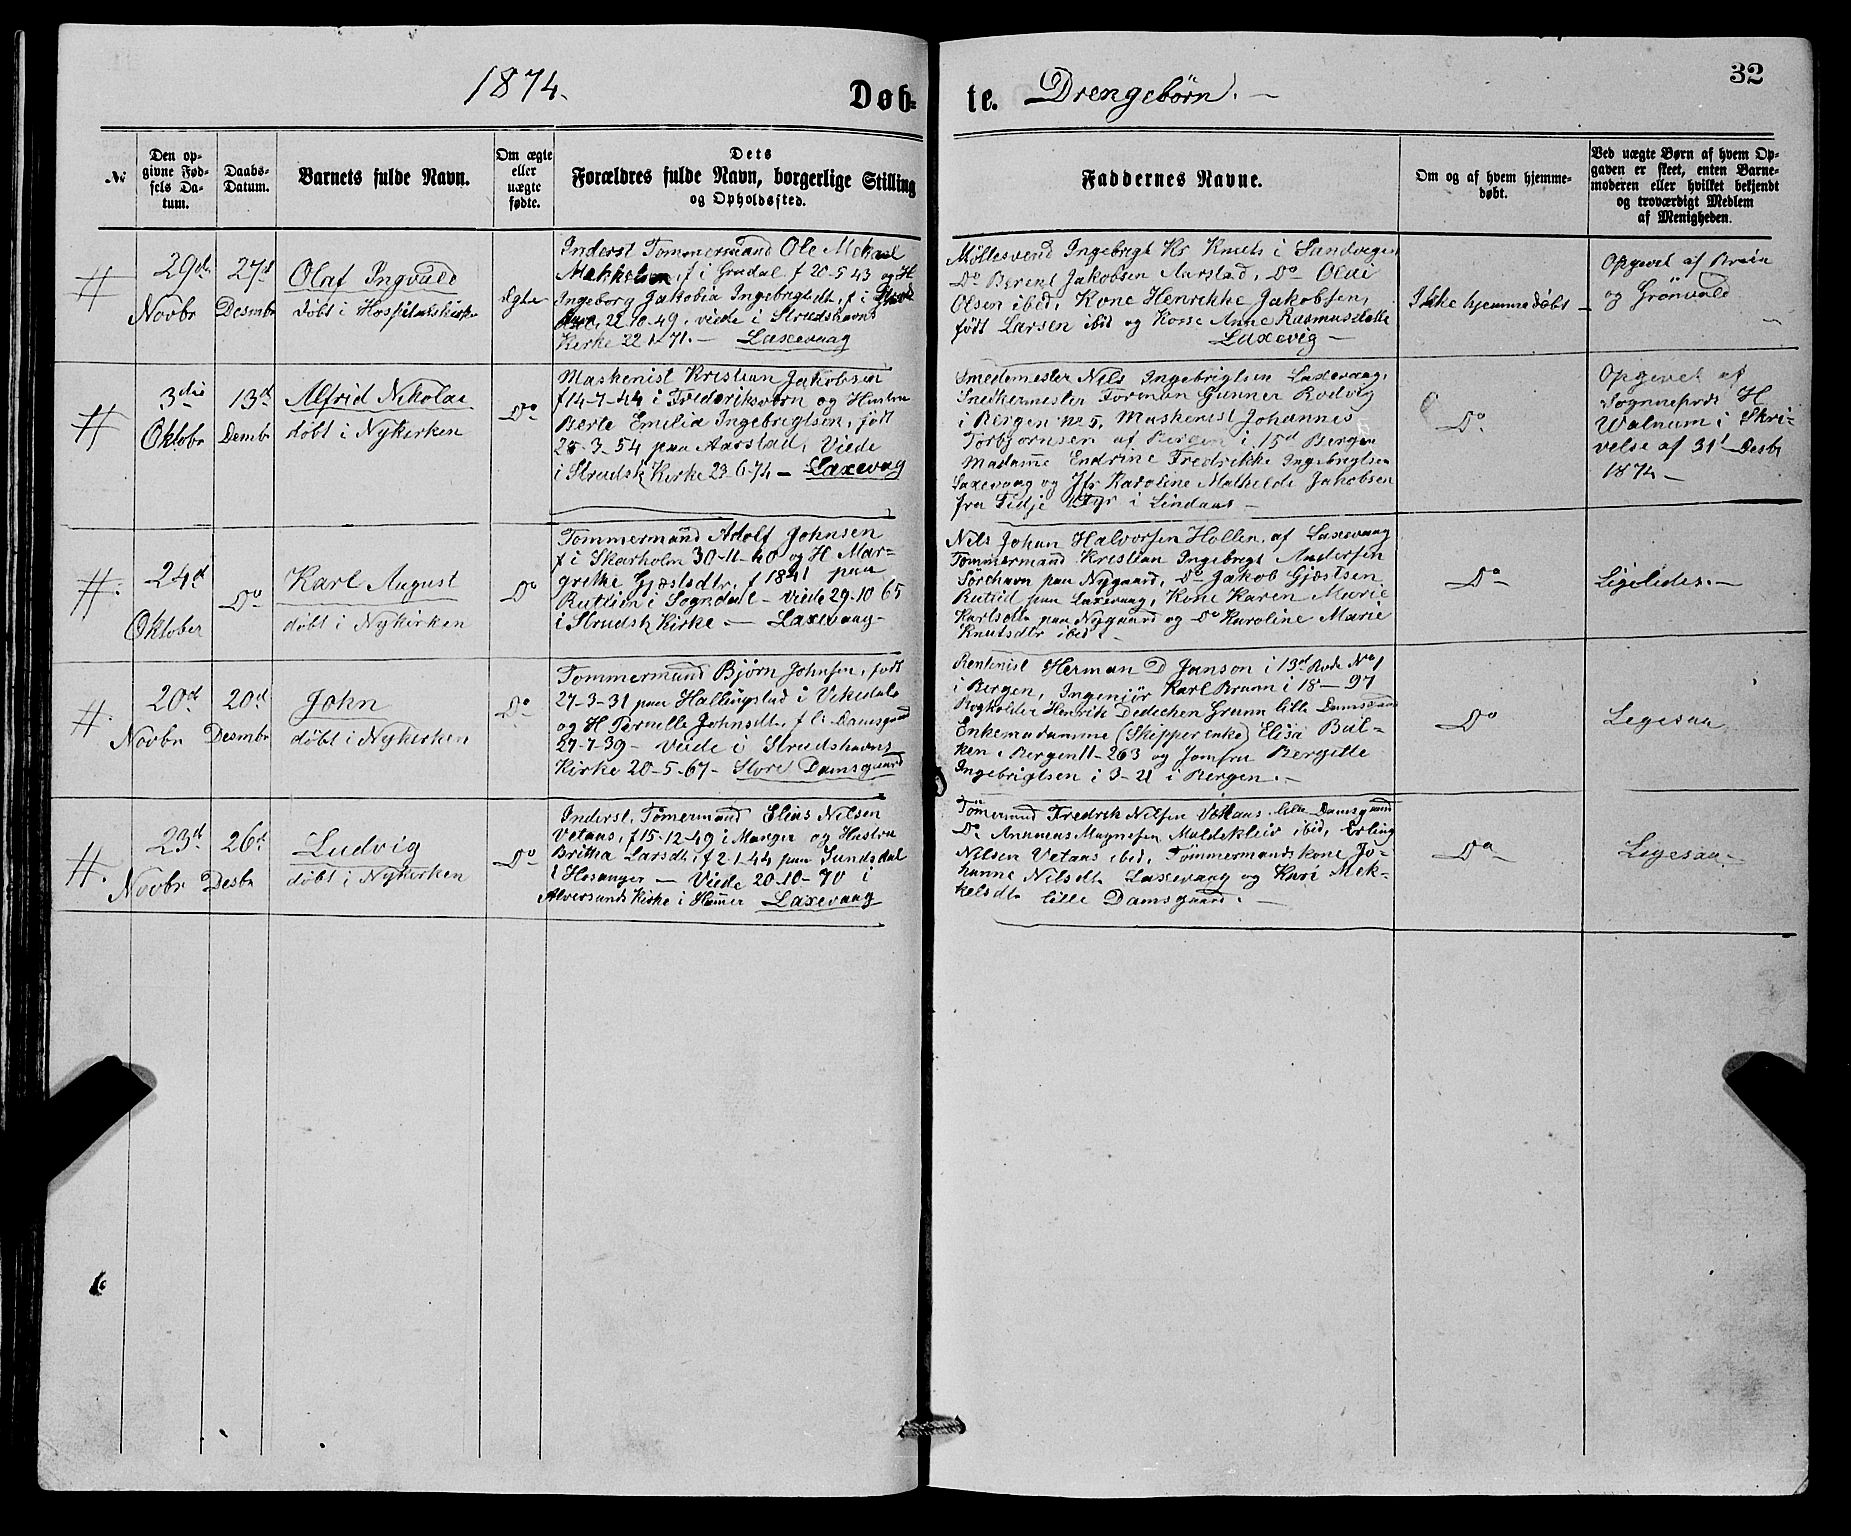 1874.
Døb-
te. Drengebörn. —
32
№
Den op-
givne Fød-
sels Da-
tum.
Daabs-
Datum.
Barnets fulde Navn.
Om ægte
eller
uægte
fødte.
Dets
Forældres fulde Navn, borgerlige Stilling
og Opholdssted.
Faddernes Navne.
Om og af hvem hjemme-
døbt.
Ved uægte Børn af hvem Op-
gaven er skeet, enten Barne-
moderen eller hvilket bekjendt
og troværdigt Medlem
af Menigheden.
#
29de
Novbr
27d
Desmbr
Olaf Ingvald
döbt i Hospitalskirke
Ægte
Inderst Tömmermand Ole Mekael
Mekkelsen, f i Grudal f 20-5-43 og H
Ingeborg Jakobia Ingebrigtsdt, f i
22-10-49, viede i Strudshavns
Kirke 22 1 71. — Laxevaag
Möllesvend Ingebrigt Ks Knuts i Sandvigen
Do Berent Jakobsen Aarstad, Do Olai
Olsen ibid, Kone Henrikke Jakobsen,
födt Larsen ibid og Kone Anne Rasmusdatte
Laxevig —
Ikke hjemmedöbt —
Opgivet af Brun
og Grönvold
#
3die
Oktobr
13d
Dembr
Alfrid Nikolai
döbt i Nykirken
Do
Maskenist Kristian Jakobsen
f 14-7-44 i Frederiksvern og Hustru
Berte Emilia Ingebrigtsen, födt
25-3-54 paa Aarstad, Viede
i Strudsh Kirke 23-6-74 — Laxevaag
Smedemester Nils Ingebrigtsen Laxevaag,
Snedkermester Forman Gunner Lodvig
i Bergen No 5, Maskenist Johannes
Torbjörnsen af Bergen i 15d Bergen
Madame Endrine Fredrikke Ingebrigtsen
Laxevaag og Jfr Karoline Mathilde Jakobsen
fra Fedje Fyr i Lindaas —
Do
Opgivet af
Sognepræst H
Walnum i Skri-
velse af 31t Desbr
1874 —
#.
24d
Oktober
Do
Karl August
döbt i Nykirken
Do
Tömmermand Adolf Johnsen
f i Skarholm 30-11-40 og H Mar-
grethe Gjæstsdtr, f 1841 paa
Rutlin i Sogndal — Viede 29-10 65
i Strudsh Kirke — Laxevaag —
Nils Johan Halvorsen Hollen, af Laxevaag
Tömmermand Kristian Ingebrigt Andersen
Sörehavn paa Nygaard, Do Jakob Gjæstsen
Rutlid paa Laxevaag, Kone Karen Marie
Karlsdtr paa Nygaard og Do Karoline Marie
Knutsdtr ibid —
Do
Ligeledes. —
#.
20d
Novbr
20d
Desmbr
John
döbt i Nykirken
Do
Tömmermand Bjørn Johnsen, födt
27-3-31 paa Hallingstad i Vikedal
og H Pernelle Johnsdt, f li Damsgaard
27-7-39 — Viede i Strudshavns
Kirke 20-5-67 — Store Damsgaard
Rentenist Herman D Janson i 13d Rode No 1
i Bergen, Ingeniör Karl Bruun i 18 — 97
Bogholder Henrik Dedechen Grann lille Damsgaard
Enkemadamme (Skipperenke) Elise Bul-
ken i Bergen 11-263 og Jomfru Bergitte
Ingebrigtsen i 3-21 i Bergen. —
Do
Ligesaa
#.
23d
Novbr
26d
Desbr
Ludvig
döbt i Nykirken
Do
Inderst, Tömermand Elias Nilsen
Vetaas, f 15-12-49 i Manger og Hustru
Britha Larsdt, f 2-1-44 paa Sundsdal
i Hosanger — Viede 20-10-70 i
Alversunds Kirke i Hamer Laxevaag
Tömermand Fredrik Nilsen Vetaas lille Damsgaard
Do Ananias Magnesen Muldekleiv ibid, Erling
Nilsen Vetaas ibid, Tömmermandskone Jo-
hanne Nilsdt Laxevaag og Kari Mek-
kelsdt lille Damsgaard. —
Do
Ligesaa —